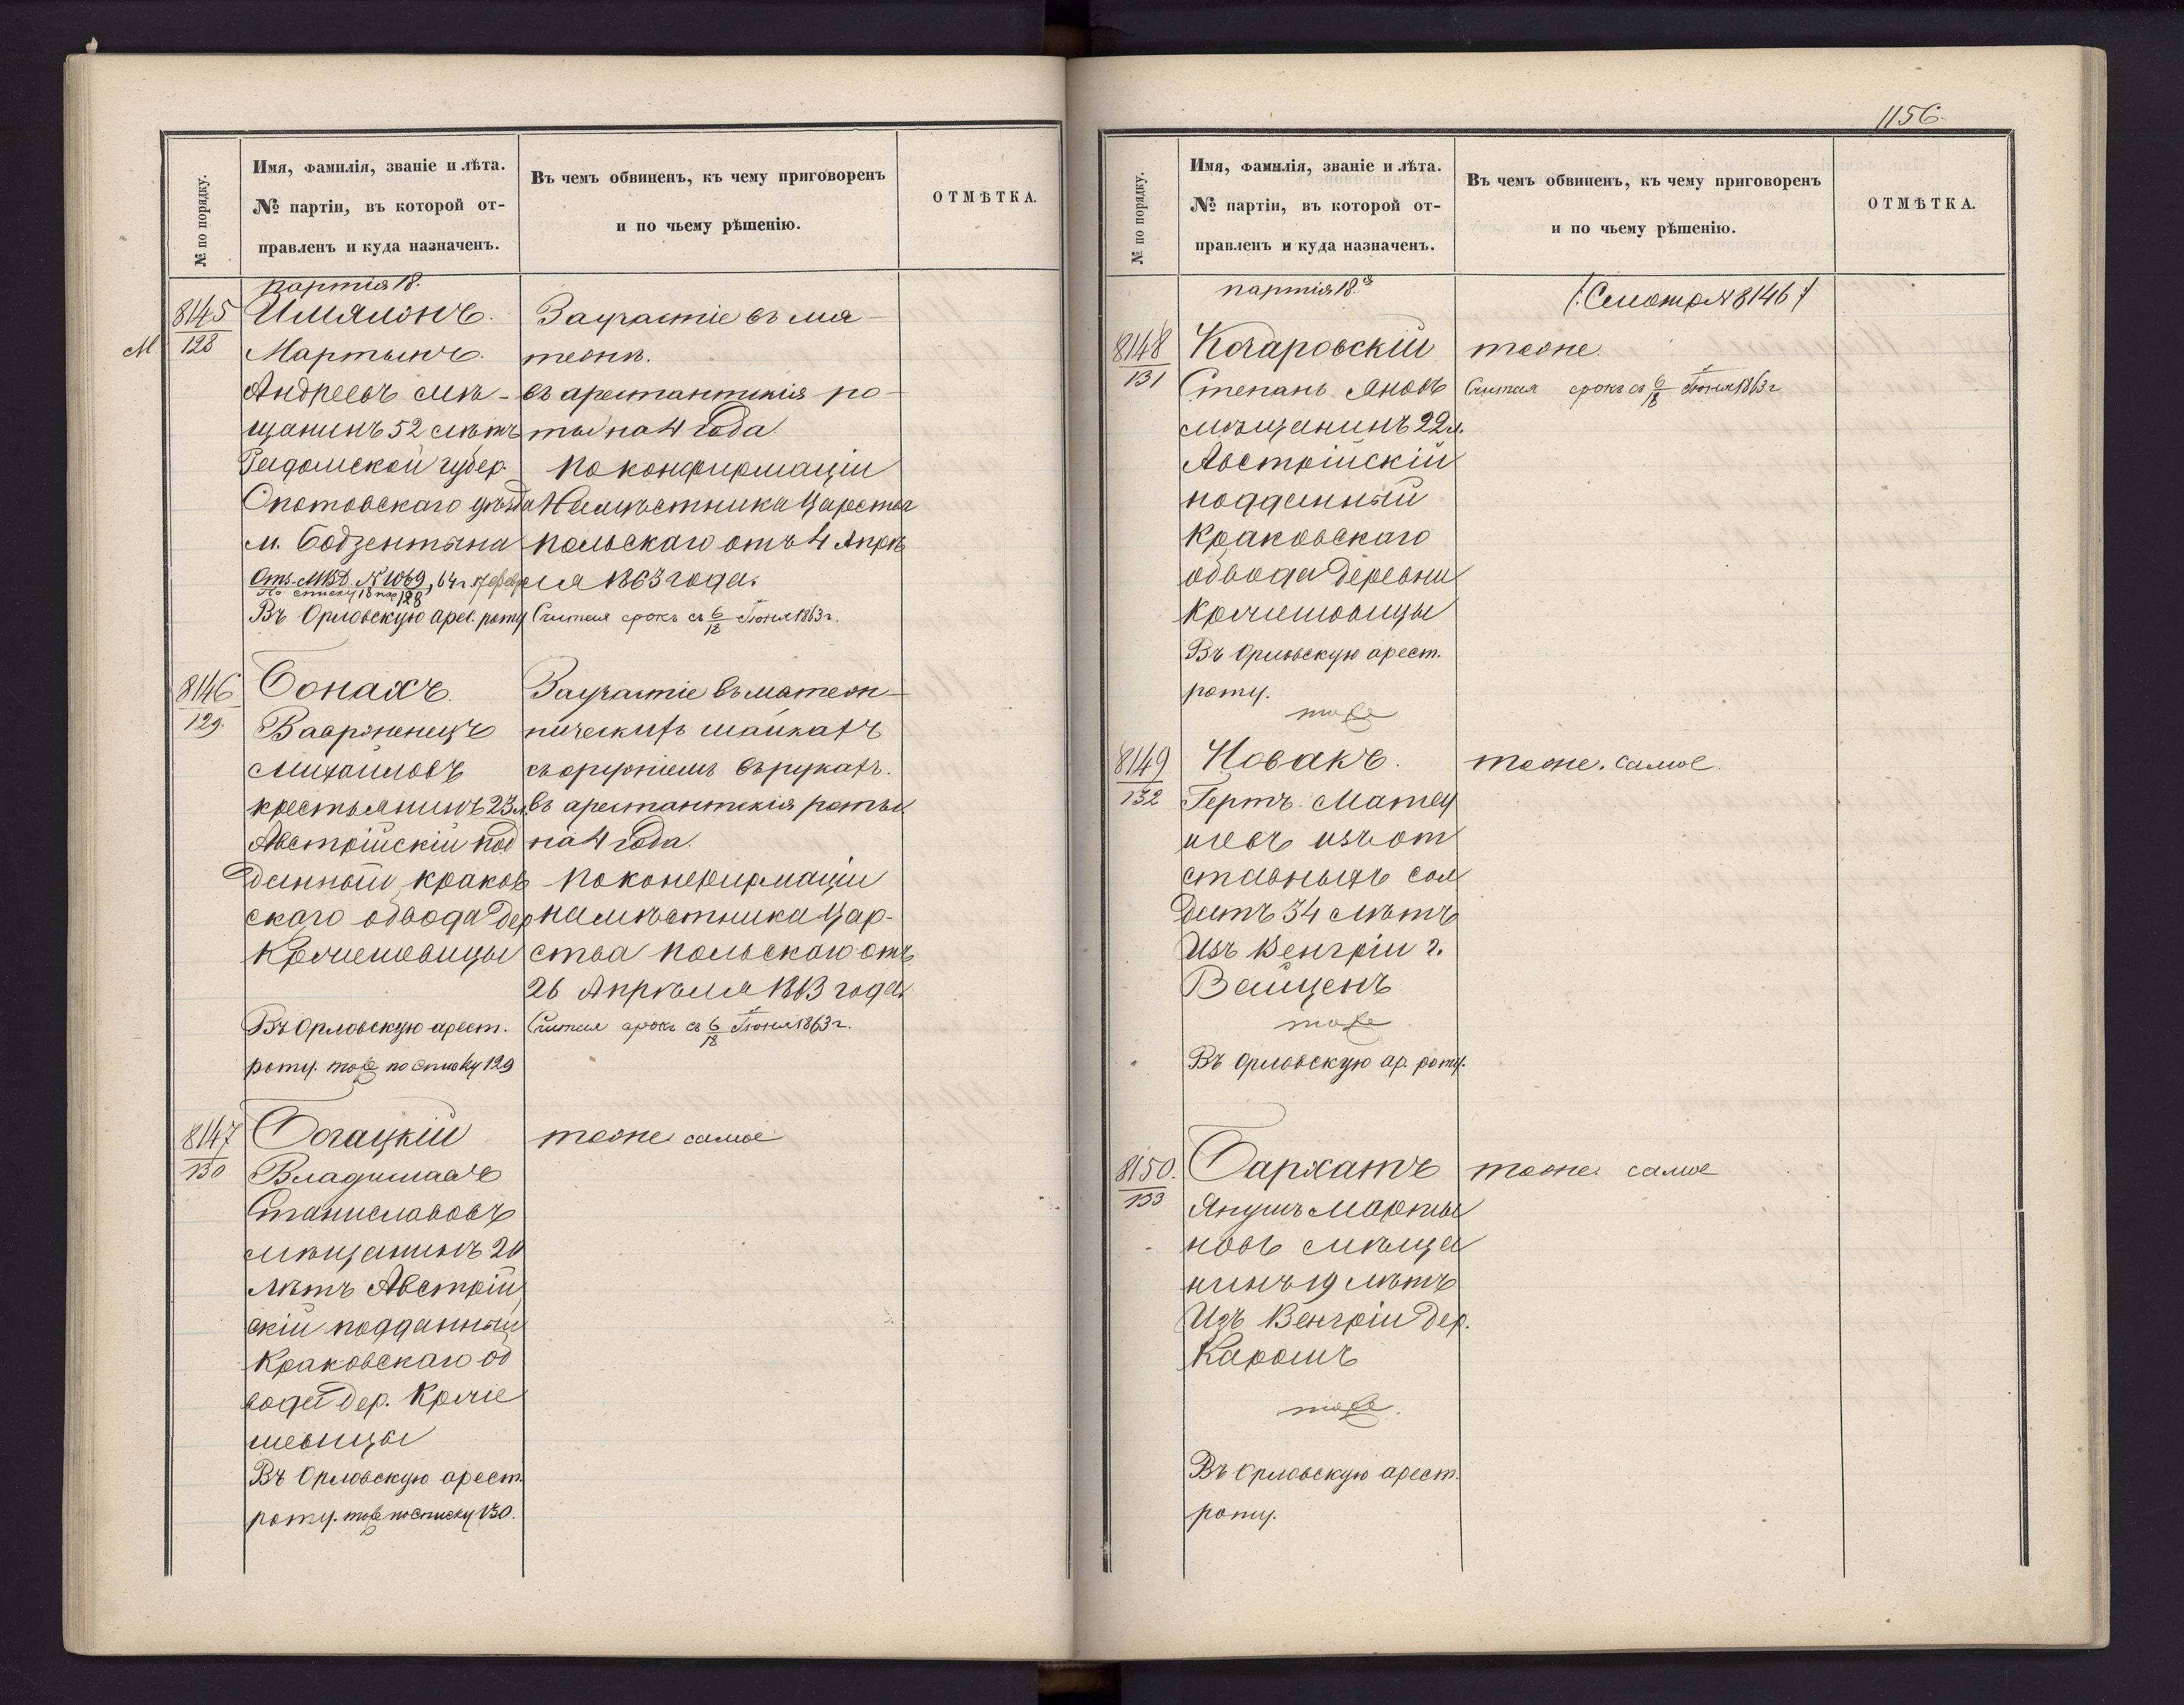 № по порядку.
Имя, фамилія, званіе и лѣта.
№ партіи, въ которой от-
правленъ и куда назначенъ.
Въ чемъ обвиненъ, къ чему приговоренъ
и по чьему рѣшенію.
ОТМѢТКА.
партія 18.
8145
128
М.
Мартынъ
Андреевъ мѣ-
щанинъ 52 лѣтъ
Радомской губер.
Опотовскаго уѣзда
м. Бодзентына
Отъ МВД. № 1069, 64 г. 17 февр
По списку 18 пар 128
Въ Орловскую арес. роту
За участіе въ мя-
тежѣ.
въ арестантскія ро-
ты на 4 года.
По конфирмаціи
Намѣстника Царства
польскаго отъ 4 Апрѣ
ля 1863 года.
Считая срокъ съ 6/18 Іюня 1863 г.
8146
129.
Бонахъ.
Вавржинецъ
Михайловъ
крестьянинъ 23 л.
Австрійскій под
данный, краков
скаго обвода дер
Кржешовицы
Въ Орловскую арест.
роту. тоже по списку 129
За участіе въ матеж-
ническихъ шайкахъ
съ оружіемъ въ рукахъ.
въ арестантскія роты
на 4 года.
По конфирмаціи
намѣстника Цар-
ства польскаго отъ
26 Апрѣля 1863 года.
Считая срокъ съ 6/18 Іюня 1863 г.
8147
130
Богацкій
Владиславъ
Станиславовъ
мѣщанинъ 20
лѣтъ Австрій
скій подданный
Краковскаго об
вода дер. Крже
шевицы
Въ Орловскую арест.
роту. тоже по списку 130.
тоже самое
1156.
№ по порядку.
Имя, фамилія, званіе и лѣта.
№ партіи, въ которой от-
правленъ и куда назначенъ.
Въ чемъ обвиненъ, къ чему приговоренъ
и по чьему рѣшенію.
ОТМѢТКА.
партія 18.я
/:Смотр № 8146:/
8148
131
Кочаровскій
Степанъ Яновъ
мѣщанинъ 22 л.
Австрійскій
подданный
Краковскаго
обвода деревни
Кржешовицы
Въ Орловскую арест.
роту.
тоже
тоже.
Считая срокъ съ 6/18 Іюня 1863 г
8149
132
Новакъ.
Гертъ Матеу
шевъ изъ от
ставныхъ сол
датъ 34 лѣтъ
Изъ Венгріи г.
Вайценъ
тоже
Въ Орловскую ар. роту.
тоже. самое.
8150.
133
Бархатъ
Янушъ Марты
новъ мѣща
нинъ 19 лѣтъ
Изъ Венгріи дер.
Карошъ
тоже.
Въ Орловскую арест.
роту.
тоже. самое